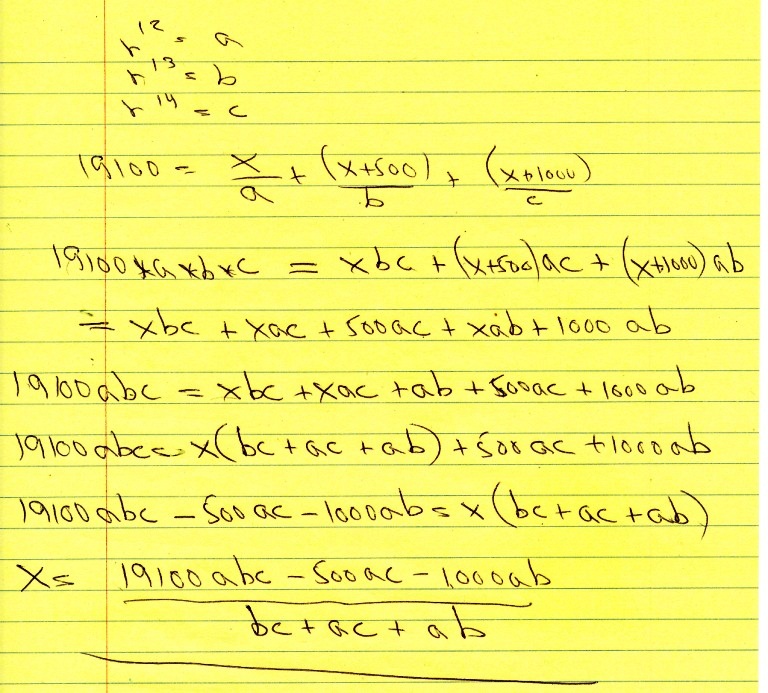 r^12 = a
r^13 = b
r^14 = c
19100 = x/a + (x+500)/b + (x+1000)/c
19100*a*b*c = xbc + (x+500)ac + (x+1000)ab
= xbc + xac + 500ac + xab + 1000 ab
19100abc = xbc + xac + ab + 500ac + 1000ab
19100abc = x(bc + ac + ab) + 500ac + 1000ab
19100abc - 500ac - 1000ab = x(bc + ac + ab)
x = (19100abc - 500ac - 1000ab)/(bc + ac + ab)